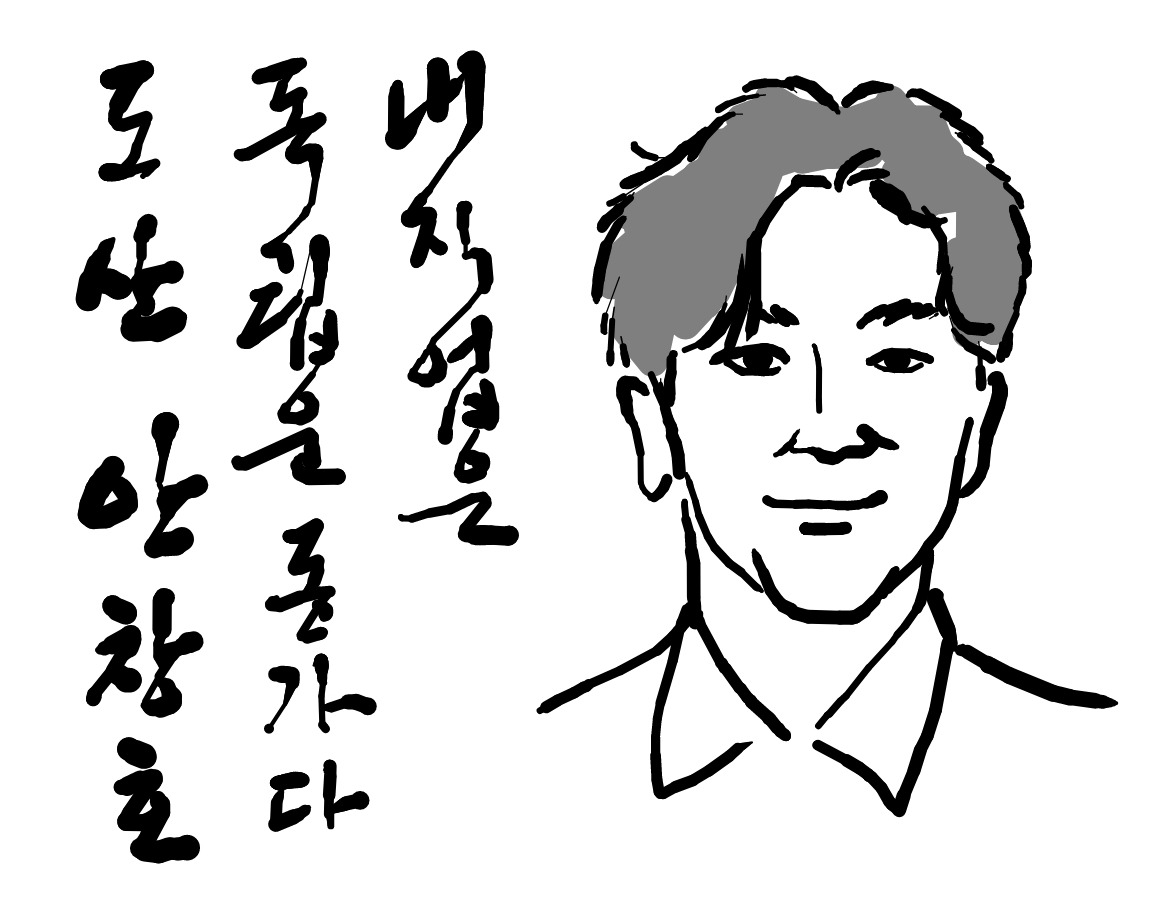 내 직업은
독립운동가다
도산 안창호